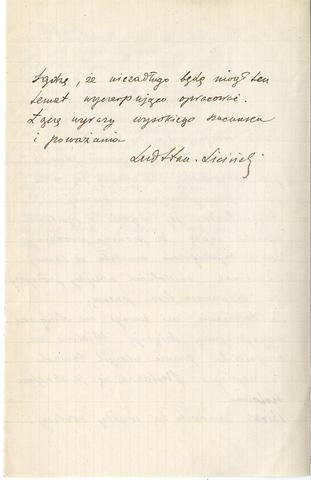 Sądzę, że niezadługo będę mógł ten
temat wyczerpująco opracować.
Łączę wyrazy wysokiego szacunku
i poważania
Lud Stan. Liciński